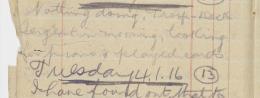 Nothing doing, Troop Deck
Sergeant in morning, looking
played cards
Tuesday 4.1.16 (13)
I have found out that to